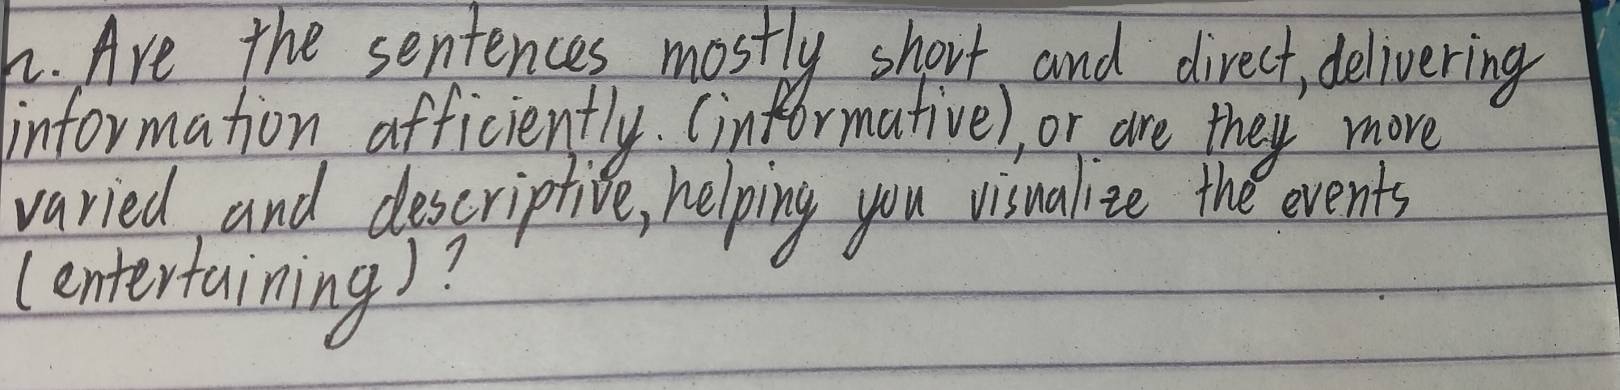 n. Are the sentences mostly short and direct, delivering
information afficiently. (informative), or are they more
varied and descriptive, helping you visualize the events
(entertaining)?